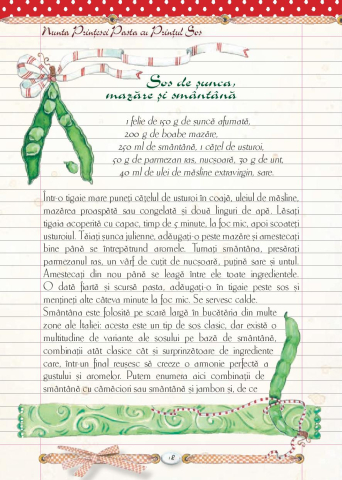 Nunta Prințesei Pasta cu Prințul Sos
Sos de șunca,
mazăre și smântână
1 felie de 150 g de șuncă afumată,
200 g de boabe mazăre,
250 ml de smântână, 1 cățel de usturoi,
50 g de parmezan ras, nucșoară, 30 g de unt,
40 ml de ulei de măsline extravirgin, sare.
Într-o tigaie mare puneți cățelul de usturoi în coajă, uleiul de măsline,
mazărea proaspătă sau congelată și două linguri de apă. Lăsați
tigaia acoperită cu capac, timp de 5 minute, la foc mic, apoi scoateți
usturoiul. Tăiați șunca julienne, adăugați-o peste mazăre și amestecați
bine până se întrepătrund aromele. Turnați smântâna, presărați
parmezanul ras, un vârf de cuțit de nucșoară, puțină sare și untul.
Amestecați din nou până se leagă între ele toate ingredientele.
O dată fiartă și scursă pasta, adăugați-o în tigaie peste sos și
mențineți alte câteva minute la foc mic. Se servesc calde.
Smântâna este folosită pe scară largă în bucătăria din multe
zone ale Italiei: acesta este un tip de sos clasic, dar există o
multitudine de variante ale sosului pe bază de smântână,
combinații atât clasice cât și surprinzătoare de ingrediente
care, într-un final reușesc să creeze o armonie perfectă a
gustului și aromelor. Putem enumera aici combinații de
smântână cu cârnăciori sau smântână și jambon și, de ce